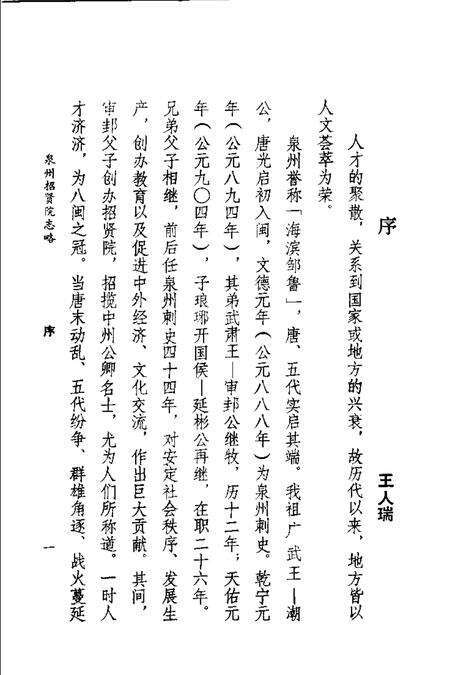 序
王人瑞
人才的聚散，关系到国家或地方的兴衰，故历代以来，地方皆以
人文荟萃为荣。
泉州誉称「海滨邹鲁」，唐、五代实启其端。我祖广武王—潮
公，唐光启初入闽，文德元年（公元八八八年）为泉州刺史。乾宁元
年（公元八九四年），其弟武肃王—审邽公继牧，历十二年；天佑元
年（公元九〇四年），子琅琊开国侯—延彬公再继，在职二十六年。
兄弟父子相继，前后任泉州刺史四十四年，对安定社会秩序、发展生
产，创办教育以及促进中外经济、文化交流，作出巨大贡献。其间，
审邽父子创办招贤院，招揽中州公卿名士，尤为人们所称道。一时人
才济济，为八闽之冠。当唐末动乱、五代纷争、群雄角逐、战火蔓延
泉州招贤院志略
序
一